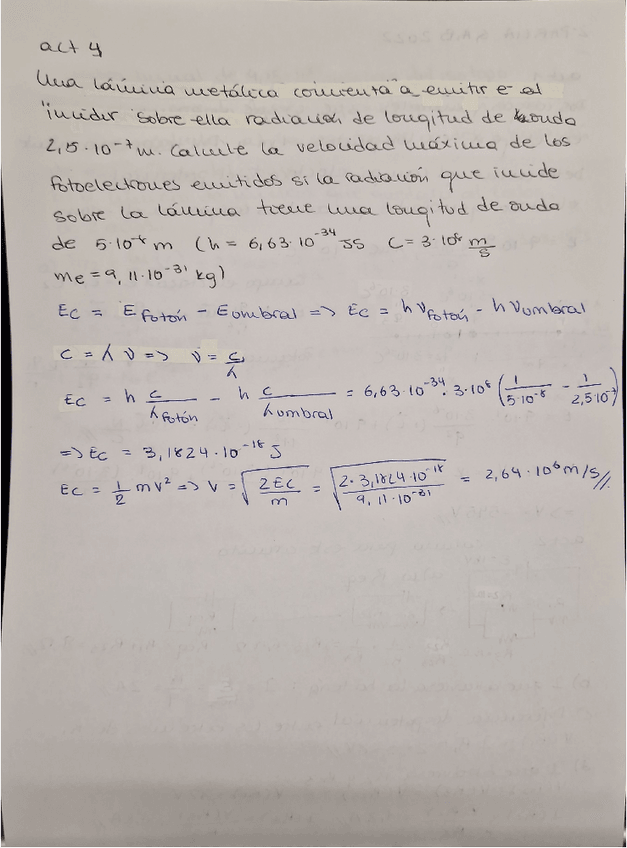 act 4
Una lámina metálica comienta a emitir e- al
incidir sobre ella radiación de longitud de onda
2,5·10⁻⁷ m. Calcule la velocidad máxima de los
fotoelectrones emitidos si la radiación que incide
sobre la lámina tiene una longitud de onda
de 5·10⁻⁸ m (h = 6,63·10⁻³⁴ JS C = 3·10⁸ m/s
me = 9,11·10⁻³¹ kg)
Ec = E fotón - Eumbral => Ec = h ν fotón - h ν umbral
C = λ ν => ν = c/λ
Ec = h c/λ fotón - h c/λ umbral = 6,63·10⁻³⁴ · 3·10⁸ (1/5·10⁻⁸ - 1/2,5·10⁻⁷)
=> Ec = 3,1824·10⁻¹⁸ J
Ec = 1/2 mv² => v = √(2Ec/m) = √(2·3,1824·10⁻¹⁸/9,11·10⁻³¹) = 2,64·10⁶ m/s//